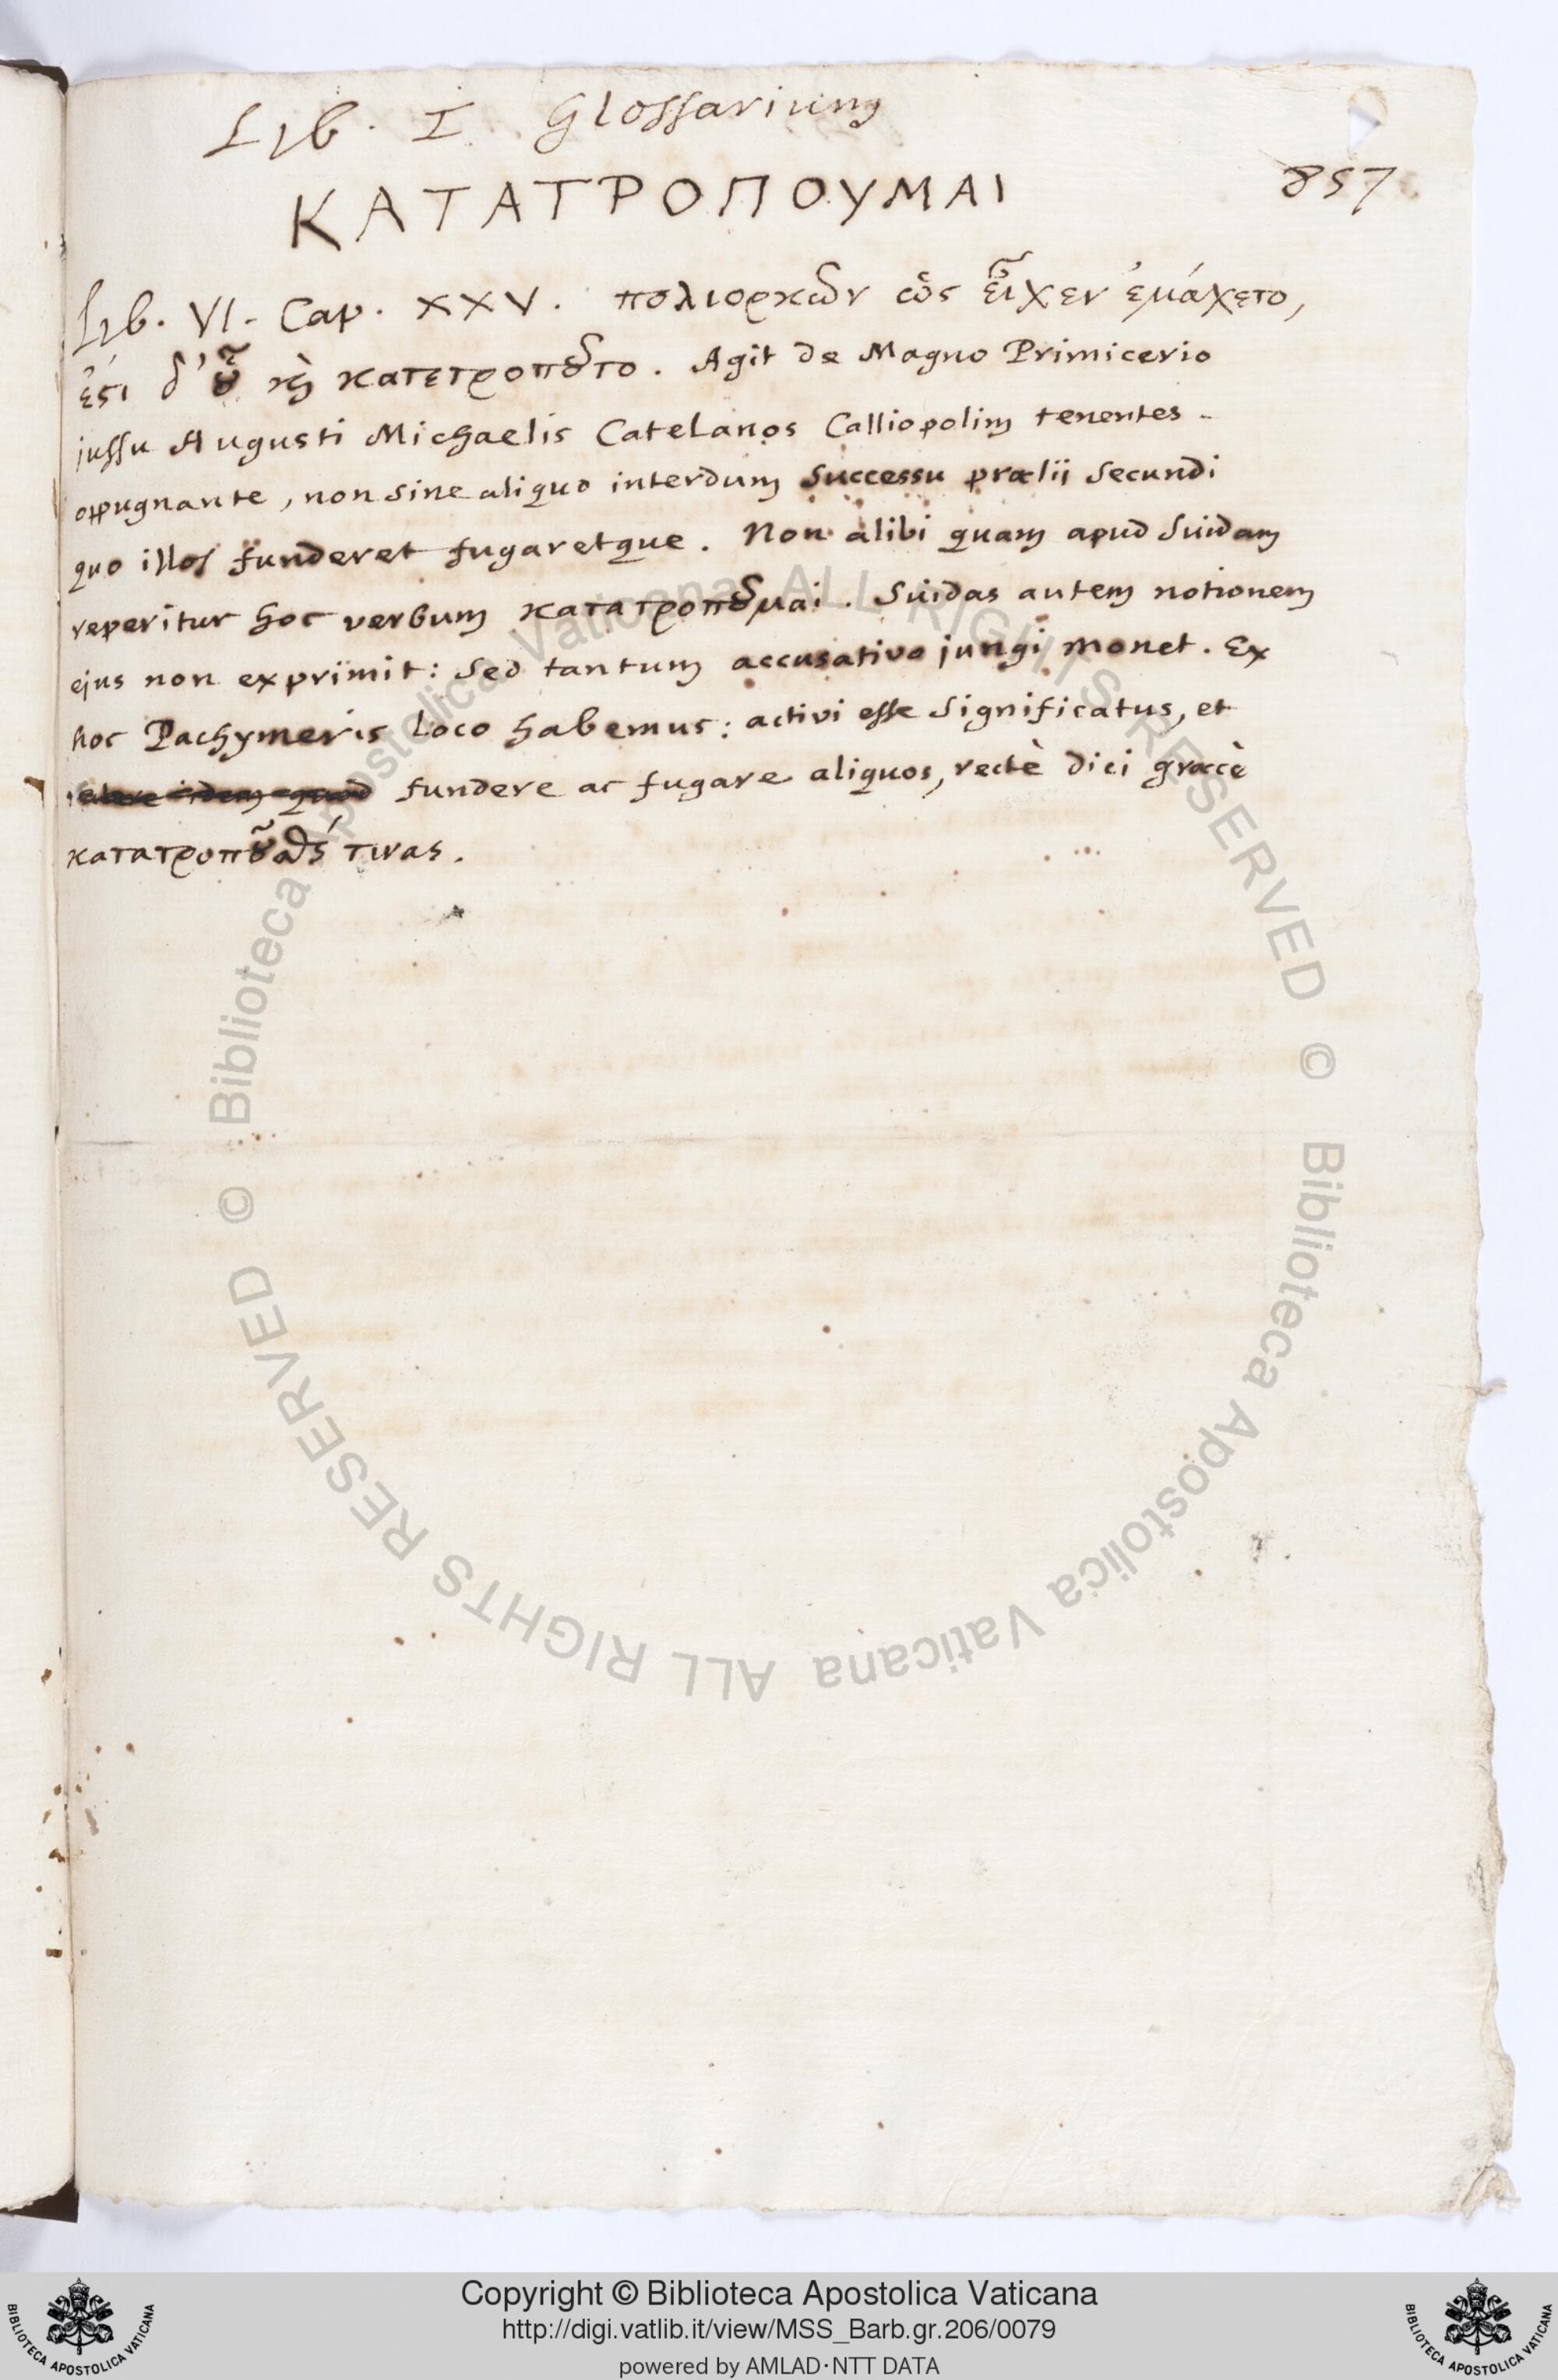 Lib. I. Glossarium
857
ΚΑΤΑΤΡΟΠΟΥΜΑΙ
Lib. VI. Cap. XXV. πολιορκῶν ὡς εἶχεν ἐμάχετο,
ἔϛι δ' οὗ καὶ κατετροποῦτο. Agit de Magno Primicerio
jussu Augusti Michaelis Catelanos Calliopolim tenentes
oppugnante, non sine aliquo interdum successu prælii secundi
quo illos funderet fugaretque. Non alibi quam apud Suidam
reperitur hoc verbum κατατροποῦμαι. Suidas autem notionem
ejus non exprimit: sed tantum accusativo jungi monet. Ex
hoc Pachymeris loco habemus: activi esse significatus, et
fundere ac fugare aliquos, rectè dici græcè
κατατροποῦσθαί τινας.
© Biblioteca Apostolica Vaticana ALL RIGHTS RESERVED
© Biblioteca Apostolica Vaticana ALL RIGHTS RESERVED
Copyright © Biblioteca Apostolica Vaticana
http://digi.vatlib.it/view/MSS_Barb.gr.206/0079
powered by AMLAD·NTT DATA
BIBLIOTECA APOSTOLICA VATICANA
BIBLIOTECA APOSTOLICA VATICANA